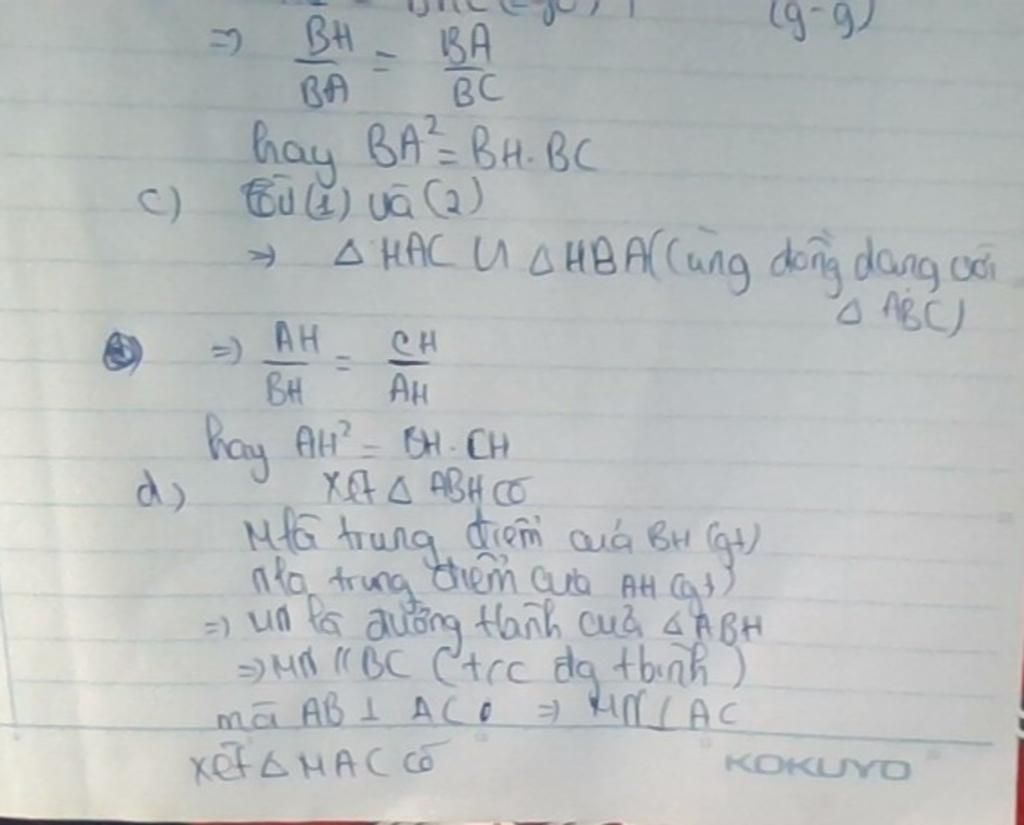 (g-g)
=> BH/BA = BA/BC
hay BA² = BH. BC
c) từ (1) và (2)
=> Δ HAC ∽ Δ HBA (cùng đồng dạng với
Δ ABC)
=> AH/BH = CH/AH
hay AH² = BH. CH
d) xét Δ ABH có
M là trung điểm của BH (gt)
N là trung điểm của AH (gt)
=> MN là đường tbành của Δ ABH
=> MN // BC (t/c đg tbình)
mà AB ⊥ AC => MN ⊥ AC
xét Δ MAC có
KOKUYO